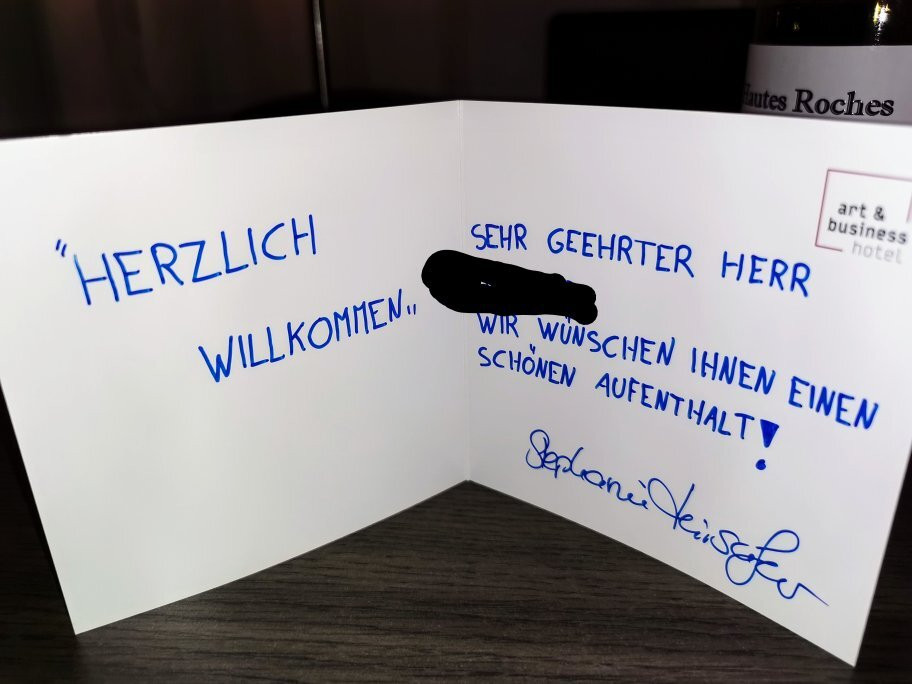 "HERZLICH
WILLKOMMEN"
SEHR GEEHRTER HERR
WIR WÜNSCHEN IHNEN EINEN
SCHÖNEN AUFENTHALT!
Stephanie
art &
business
hotel
Hautes Roches